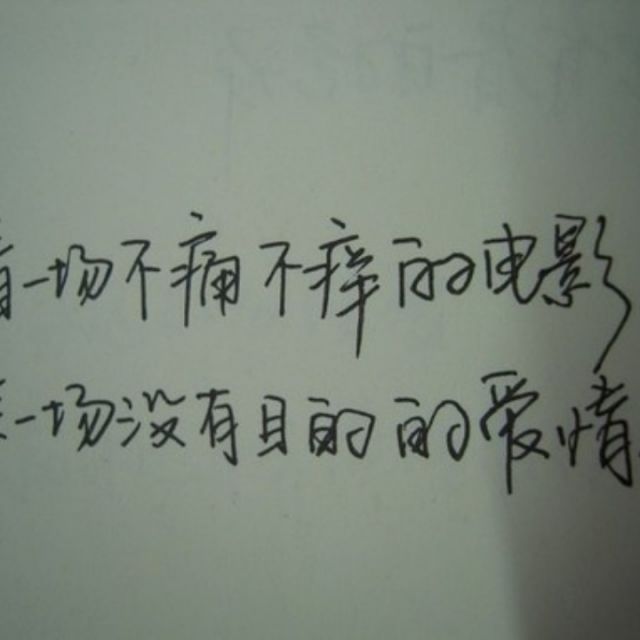 一场不痛不痒的电影
一场没有目的的爱情